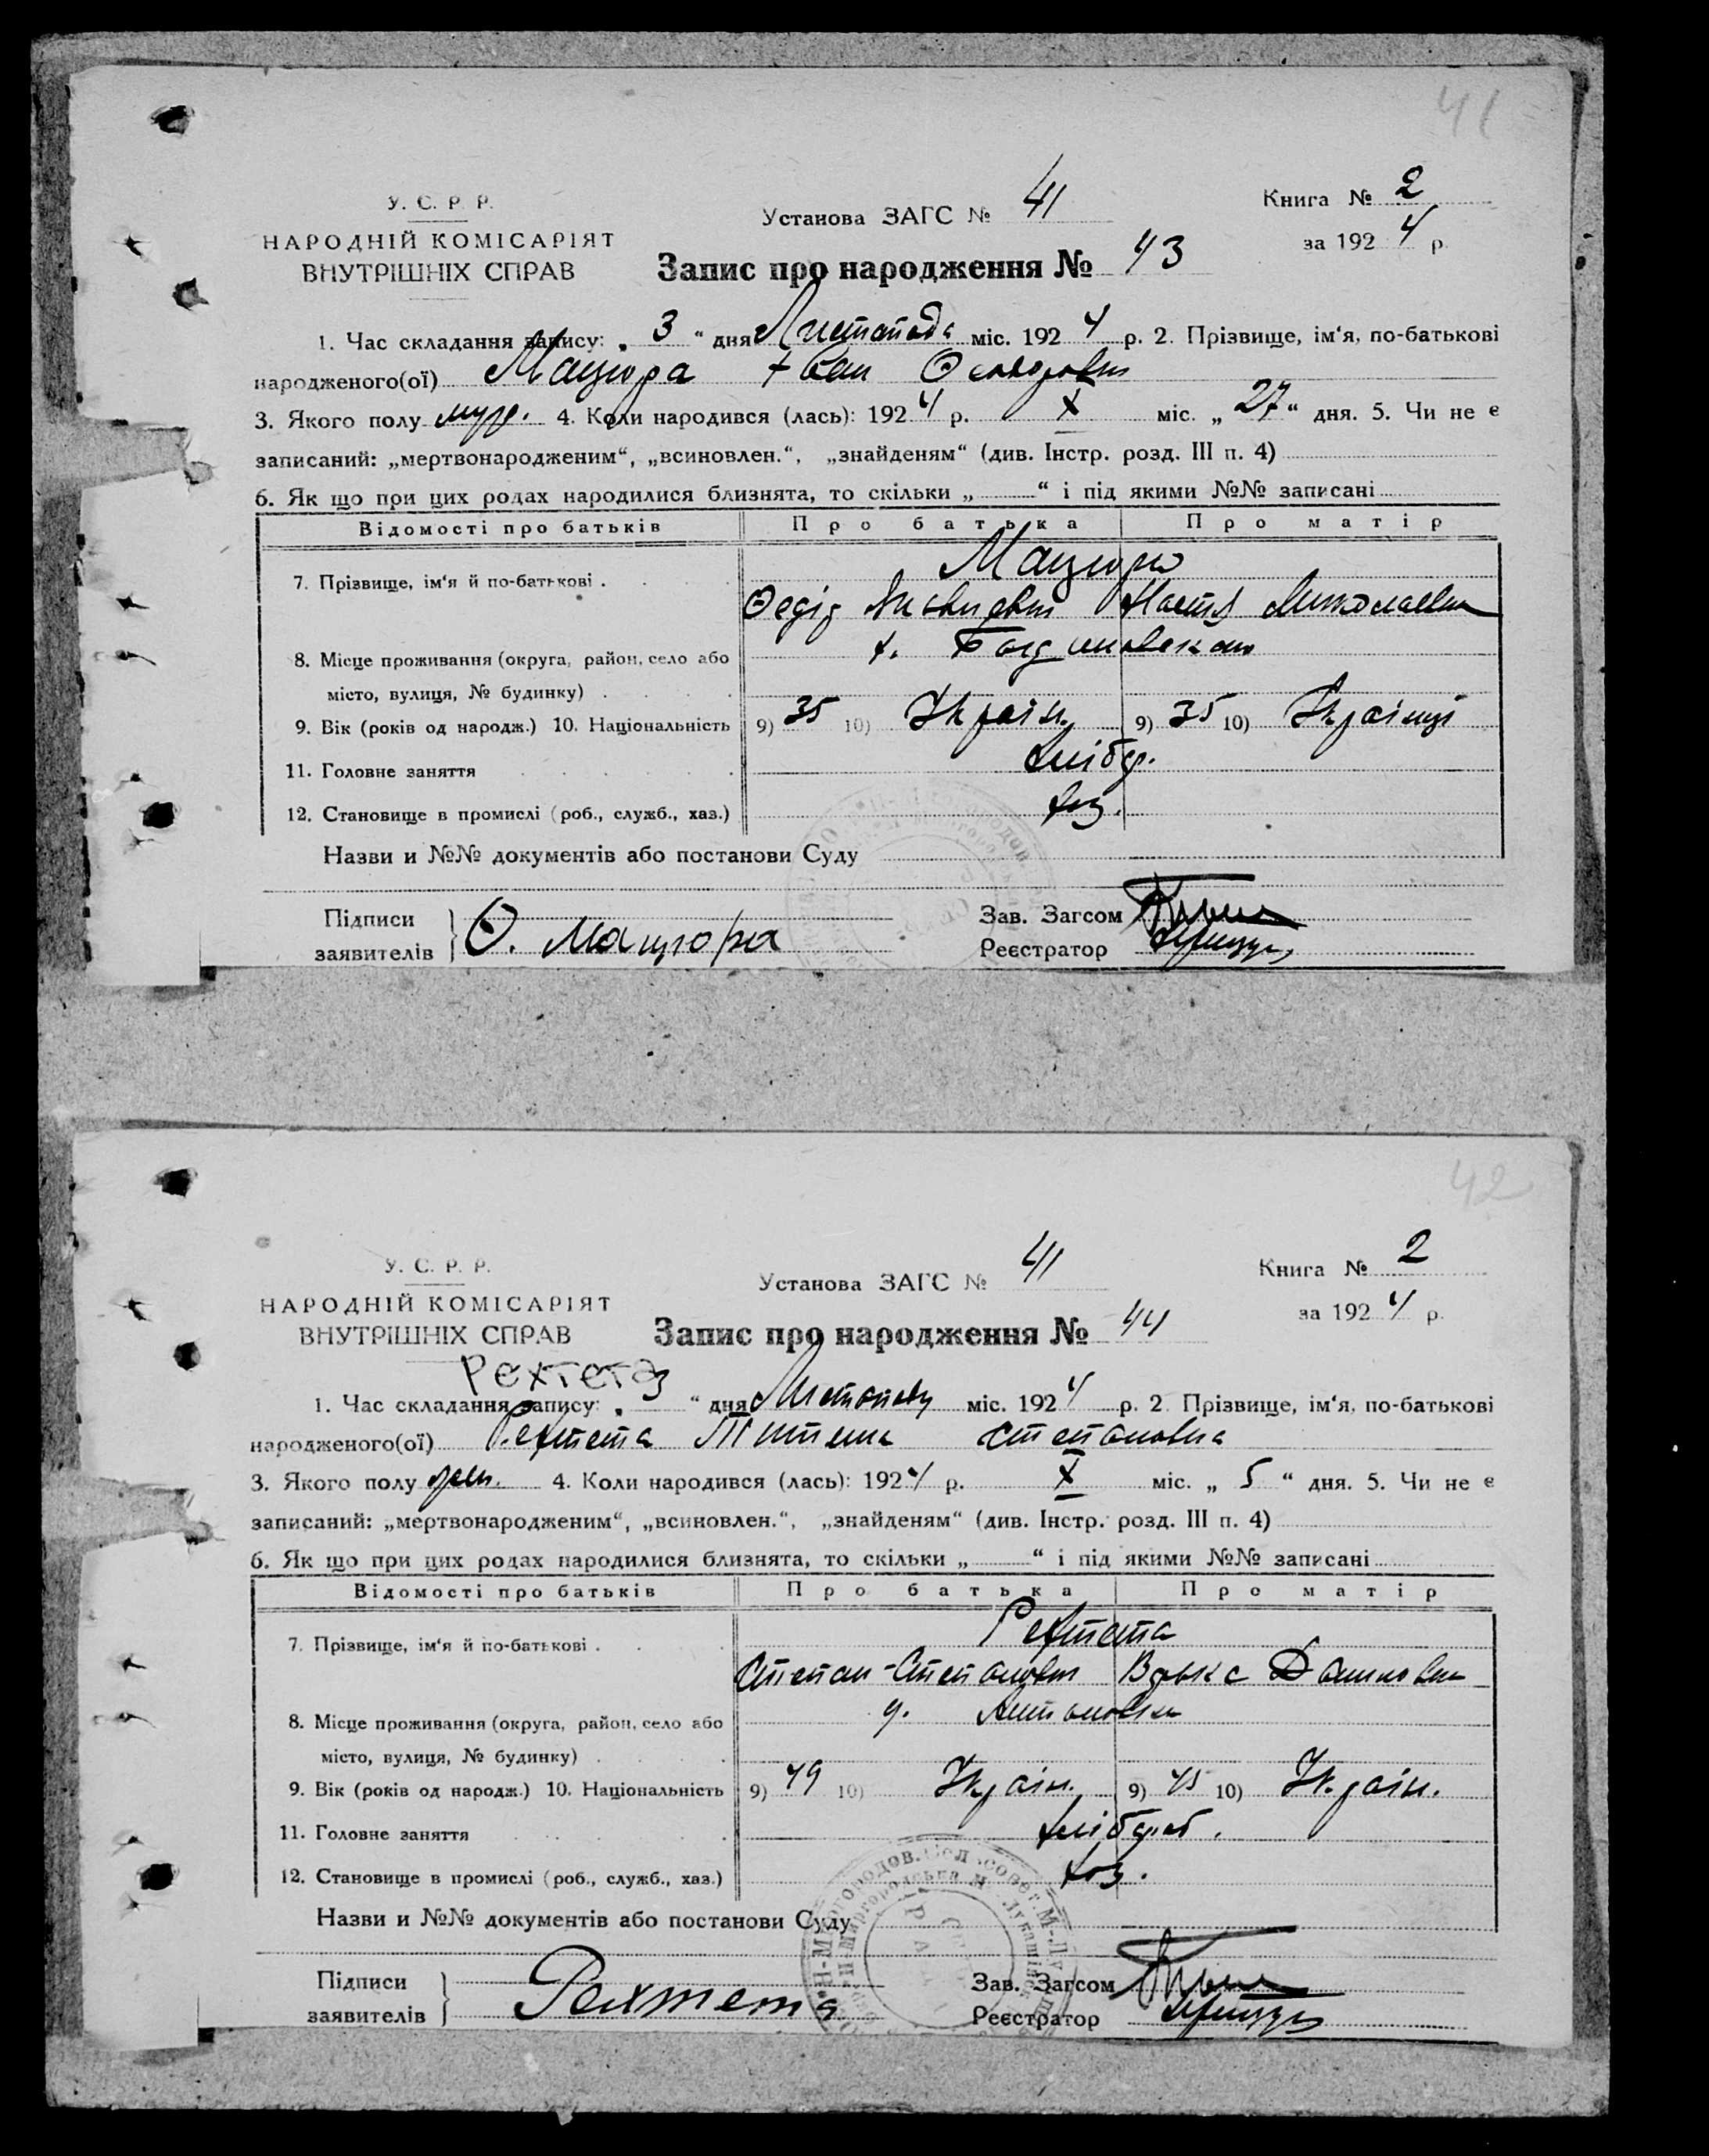 41
У. С. Р. Р.
НАРОДНІЙ КОМІСАРІЯТ
ВНУТРІШНІХ СПРАВ
Установа ЗАГС № 41
Книга № 2
за 1924 р.
Запис про народження № 43
1. Час складання запису: „ 3 “ дня Листопада міс. 1924 р. 2. Прізвище, ім‘я, по-батькові
народженого(ої) Мацюра Іван
3. Якого полу муж. 4. Коли народився (лась): 1924 р. X міс. „ 27 “ дня. 5. Чи не є
записаний: „мертвонародженим“, „всиновлен.“, „знайденям“ (див. Інстр. розд. III п. 4)
6. Як що при цих родах народилися близнята, то скільки „ “ і під якими №№ записані
Відомості про батьків Про батька Про матір
7. Прізвище, ім‘я й по-батькові . Мацюри
Ѳедір Настя Миколаевна
8. Місце проживання (округа, район, село або х.
місто, вулиця, № будинку)
9. Вік (років од народж.) 10. Національність 9) 35 10) Україн. 9) 35 10) Українці
11. Головне заняття хлібор.
12. Становище в промислі (роб., служб., хаз.) хоз.
Назви и №№ документів або постанови Суду
Підписи заявителів Ѳ. Мацюра
Зав. Загсом
Реєстратор
42
У. С. Р. Р.
НАРОДНІЙ КОМІСАРІЯТ
ВНУТРІШНІХ СПРАВ
Установа ЗАГС № 41
Книга № 2
за 1924 р.
Запис про народження № 44
Рехтета
1. Час складання запису: „ 3 “ дня Листопаду міс. 1924 р. 2. Прізвище, ім‘я, по-батькові
народженого(ої) Рехтета Степановна
3. Якого полу жен. 4. Коли народився (лась): 1924 р. X міс. „ 5 “ дня. 5. Чи не є
записаний: „мертвонародженим“, „всиновлен.“, „знайденям“ (див. Інстр. розд. III п. 4)
6. Як що при цих родах народилися близнята, то скільки „ “ і під якими №№ записані
Відомості про батьків Про батька Про матір
7. Прізвище, ім‘я й по-батькові . Рехтета
Степан Степанович
8. Місце проживання (округа, район, село або
місто, вулиця, № будинку)
9. Вік (років од народж.) 10. Національність 9) 49 10) Україн. 9) 45 10) Україн.
11. Головне заняття хлібороб.
12. Становище в промислі (роб., служб., хаз.) хоз.
Назви и №№ документів або постанови Суду
Підписи заявителів Рехтета
Зав. Загсом
Реєстратор